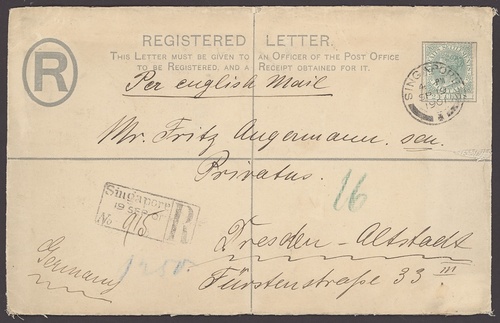 REGISTERED LETTER.
THIS LETTER MUST BE GIVEN TO AN OFFICER OF THE POST OFFICE
TO BE REGISTERED, AND A RECEIPT OBTAINED FOR IT.
R
Per english Mail
SINGAPORE
Mr. Fritz Angermann, sen.
Privatus.
16
Singapore
R
No
Dresden-Altstadt
Germany
Fürstenstraße 33 III